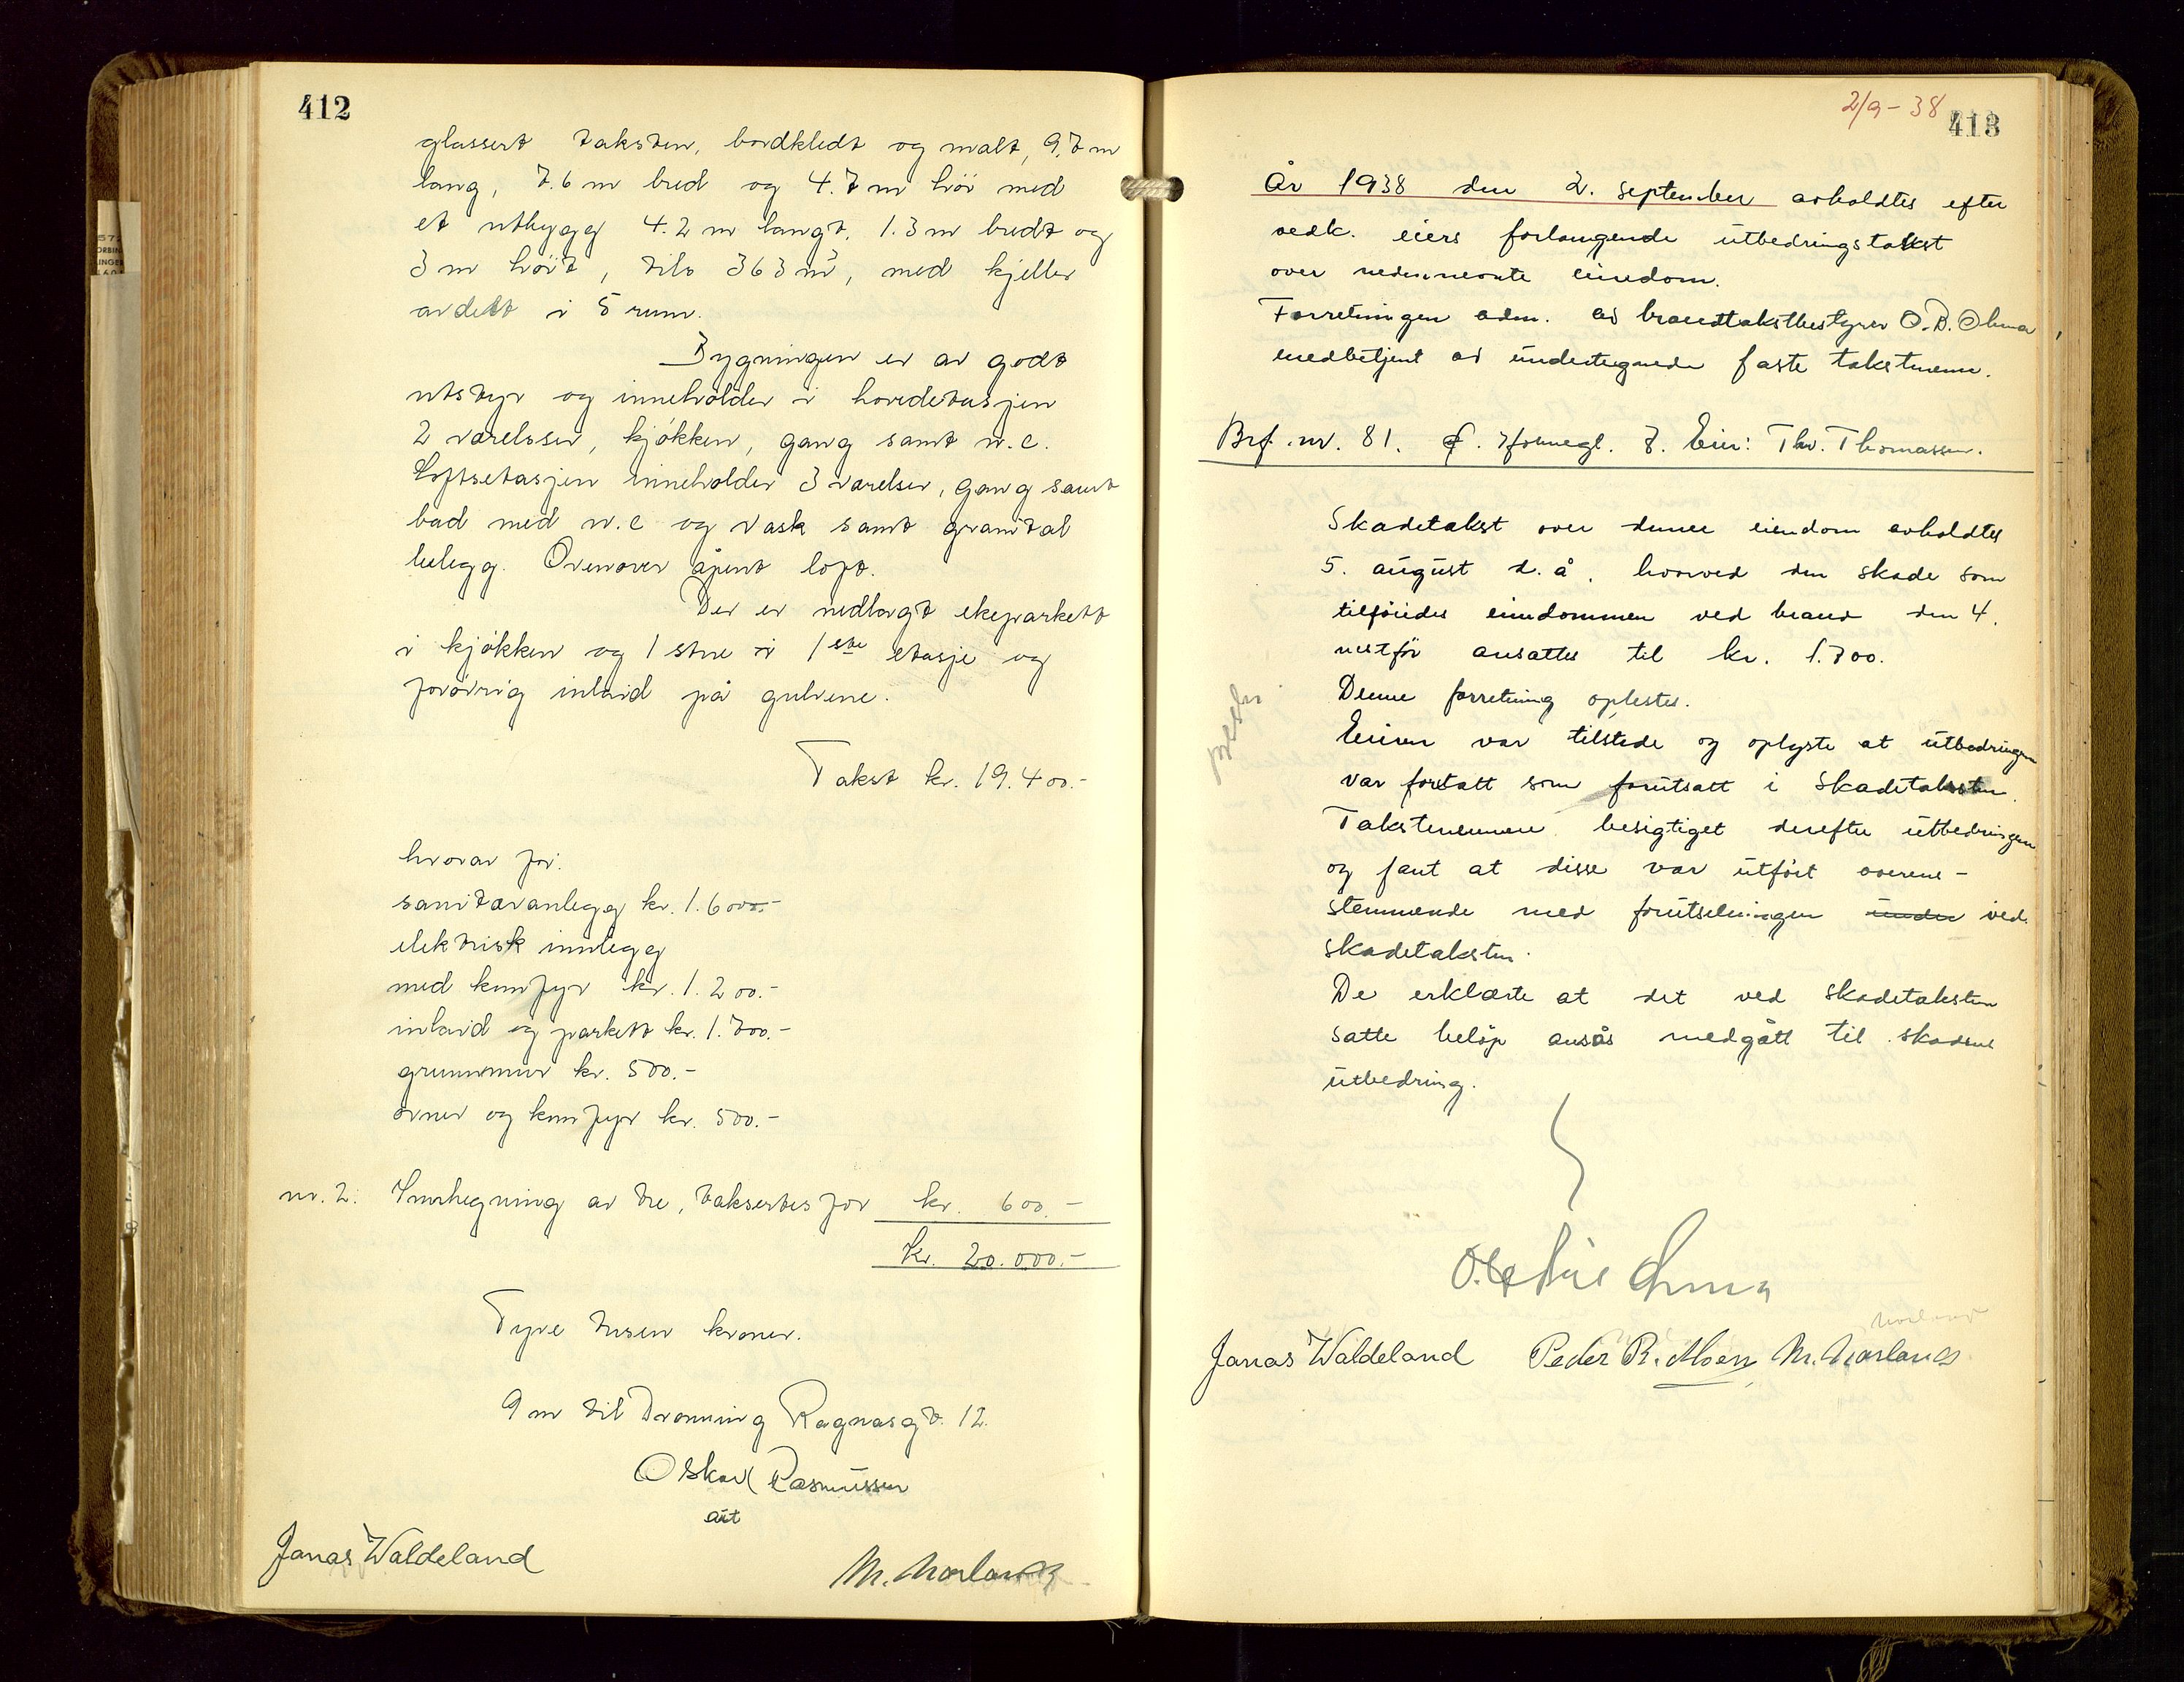 412
glassert taksten, bordkledt og malt, 9.7 m
lang, 7.6 m bred og 4.7 m höi med
et utbygg 4.2 m langt, 1.3 m bredt og
3 m höit, tils 363 m³, med kjeller
avdelt i 5 rum.
Bygningen er av godt
utstyr og inneholder i hovedetasjen
2 værelser, kjøkken, gang samt w.c.
Loftsetasjen inneholder 3 værelser, gang samt
bad med w.c og vask samt granitål
belegg. Ovenover åpent loft.
Der er nedlagt ekeparkett
i kjøkken og 1 stue i 1ste etasje og
forövrig inlaid på gulvene.
Takst kr. 19.400.-
hvorav for:
sanitæranlegg kr. 1.600.-
elektrisk innlegg
med komfyr kr. 1.200.-
inlaid og parkett kr. 1.700.-
grunnmur kr. 500.-
ovner og komfyr kr. 500.-
nr. 2. Innhegning av tre, takseres for kr. 600.-
kr. 20.000.-
Tyve tusen kroner.
9 m til Dronning Ragnasgt. 12.
Oskar Rasmussen
ait
Janas Waldeland
M. Norland
2/9-38
413
År 1938 den 2. september avholdtes efter
vedk. eiers forlangende utbedringstakst
over nedennevnte eiendom.
Forretningen adm. av brandtakstbestyrer O.B. Ohma
medbetjent av undertegnede faste takstmenn.
Brf. nr. 81. Eier: Thv. Thomassen.
Skadetakst over denne eiendom avholdtes
5. august d. å. hvorved den skade som
tilföiedes eiendommen ved brand den 4.
nestför ansattes til kr. 1.700.
Denne forretning oplestes.
Eieren var tilstede og oplyste at utbedringen
var foretatt som forutsatt i skadetaksten.
Takstmennene besigtiget derefter utbedringen
og fant at disse var utfört overens-
stemmende med forutsetningen under ved
skadetaksten.
De erklærte at det ved skadetaksten
satte belöp ansås medgått til skadens
utbedring.
Janas Waldeland Peder R. Moen M. Norland